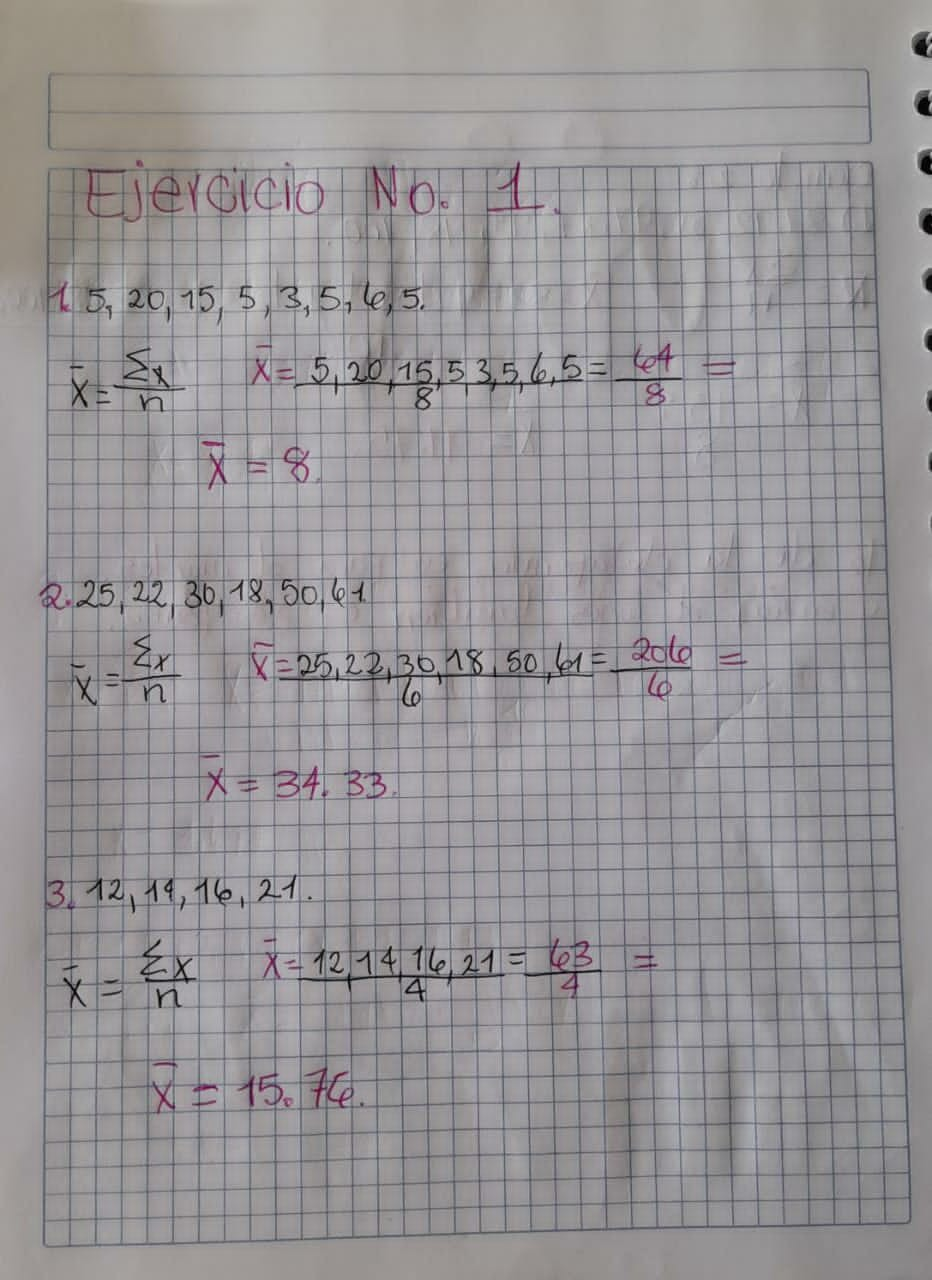 Ejercicio No. 1.
1. 5, 20, 15, 5, 3, 5, 6, 5.
x̄ = Σx/n x̄ = 5, 20, 15, 5 3, 5, 6, 5/8 = 64/8 =
x̄ = 8.
2. 25, 22, 30, 18, 50, 61
x̄ = Σx/n x̄ = 25, 22, 30, 18, 50, 61/6 = 206/6 =
x̄ = 34.33.
3. 12, 14, 16, 21.
x̄ = Σx/n x̄ = 12, 14, 16, 21/4 = 63/4 =
x̄ = 15.76.